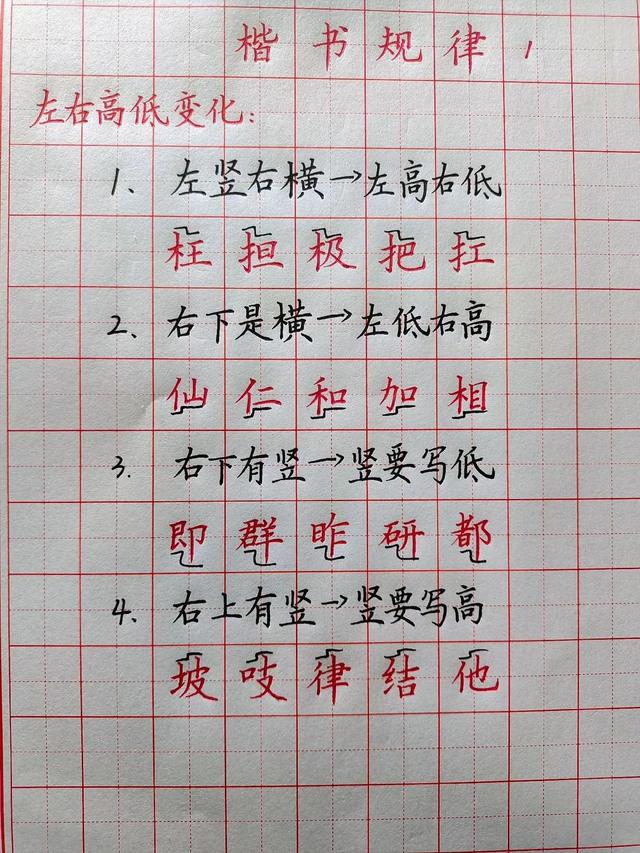 楷书规律1
左右高低变化:
1、左竖右横→左高右低
枉担极把扛
2、右下是横→左低右高
仙仁和加相
3.右下有竖→竖要写低
即群昨研都
4、右上有竖→竖要写高
坡吱律结他